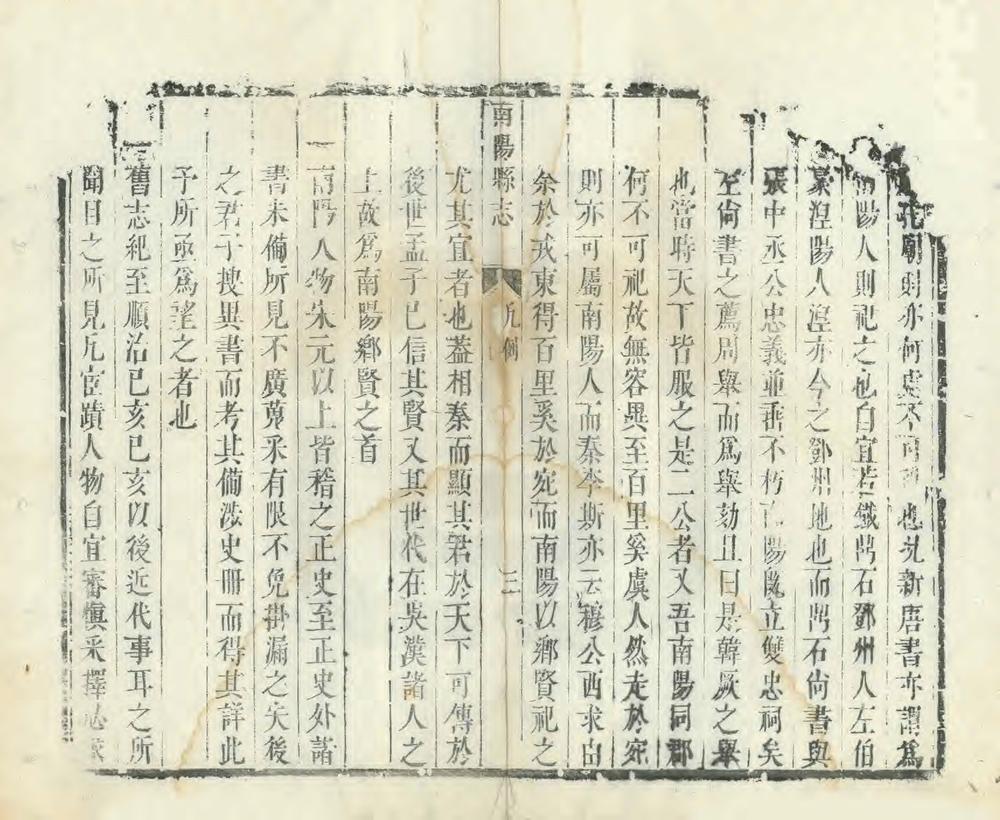 孔廟則亦何處不可祀也況新唐書亦謂爲
陽人則祀之也自宜若鐵鼑石鄧州人左伯
豪湼陽人湼亦今之鄧州地也而鼑石尚書與
張中丞公忠義並垂不朽陽旣立雙忠祠矣
左尙書之薦周舉而爲舉劾且曰是韓厥之舉
也當時天下皆服之是二公者又吾南陽同郡
何不可祀故無容異至百里奚虞人然走於宛
則亦可屬南陽人而秦李斯亦云穆公西求由
余於戎東得百里奚於宛而南陽以鄉賢祀之
南陽縣志
凡例
三
尤其宜者也葢相秦而顯其君於天下可傳於
後世孟子已信其賢又其世代在吳漢諸人之
上故爲南陽鄉賢之首
一南陽人物宋元以上皆稽之正史至正史外諸
書未備所見不廣蒐采有限不免掛漏之失後
之君子搜異書而考其備涉史冊而得其詳此
予所亟爲望之者也
一舊志紀至順治己亥己亥以後近代事耳之所
聞目之所見凡宦蹟人物自宜審愼采擇必求